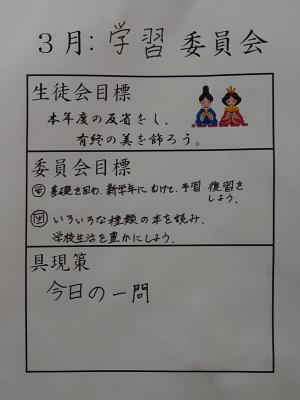 3月:学習委員会
生徒会目標
本年度の反省をし、
有終の美を飾ろう。
委員会目標
学 基礎を固め、新学年にむけて、予習・復習を
しよう。
図 いろいろな種類の本を読み、
学校生活を豊かにしよう。
具現策
今日の一問